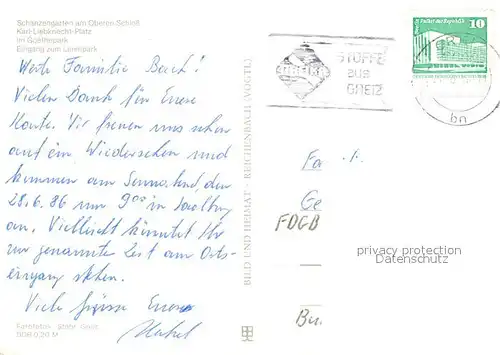 Schanzengarten am Oberen Schloß
Karl-Liebknecht-Platz
Im Goethepark
Eingang zum Leninpark
Werte Familie Bach!
Vielen Dank für Eure
Karte. Wir freuen uns schon
auf ein Wiedersehen und
kommen am Sonnabend, den
28.6.86 um 9⁰⁰ in Saalburg
an. Vielleicht könntet Ihr
zur genannten Zeit am Orts-
eingang stehen.
Viele Grüße Eure
BILD UND HEIMAT REICHENBACH (VOGTL)
STOFFE
AUS
GREIZ
10
Fa
Ge
FDGB
privacy protection
Datenschutz